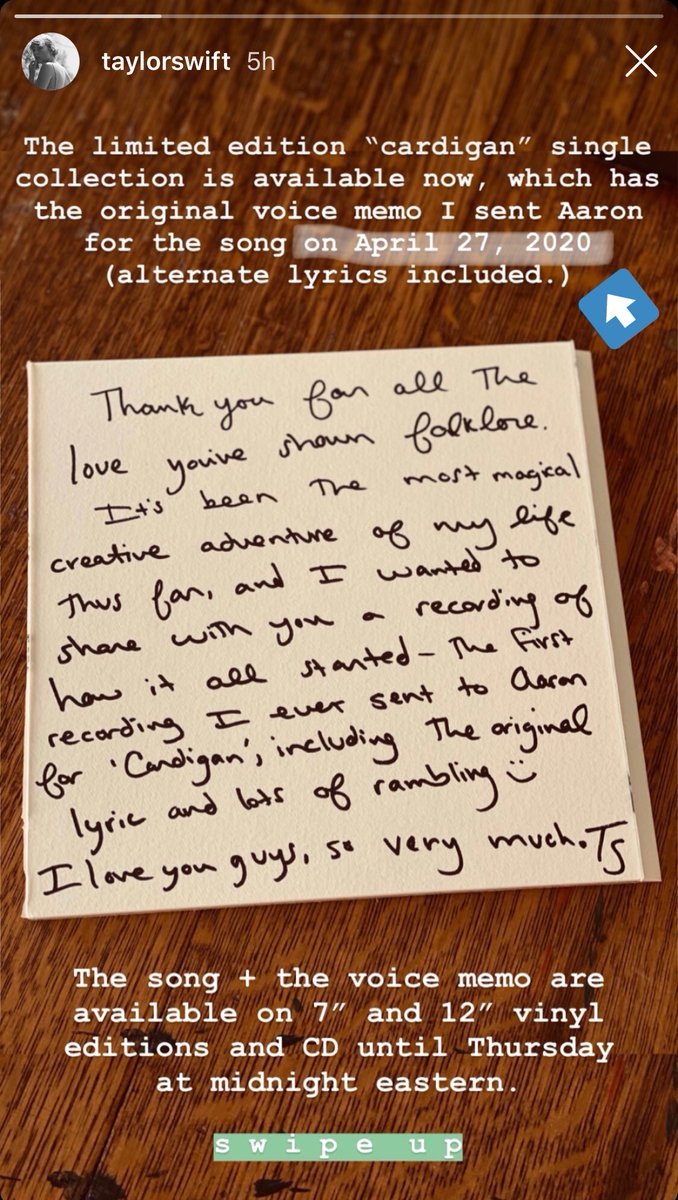 taylorswift 5h
The limited edition “cardigan” single
collection is available now, which has
the original voice memo I sent Aaron
for the song on April 27, 2020
(alternate lyrics included.)
Thank you for all The
love you've shown folklore.
It's been The most magical
creative adventure of my life
thus far, and I wanted to
share with you a recording of
how it all started- The first
recording I ever sent to Aaron
for 'Cardigan', including The original
lyric and lots of rambling :)
I love you guys, so very much. TS
The song + the voice memo are
available on 7” and 12” vinyl
editions and CD until Thursday
at midnight eastern.
swipe up